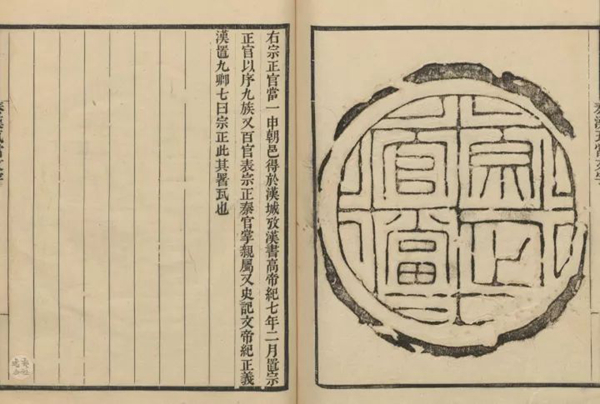 宗正
官當
右宗正官當一申朝邑得於漢城攷漢書高帝紀七年二月置宗
正官以序九族又百官表宗正秦官掌親屬又史記文帝紀正義
漢置九卿七曰宗正此其署瓦也